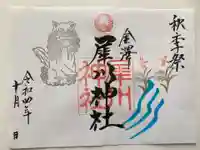 秋季祭
金澤
犀川神社
令和四年
十月
日